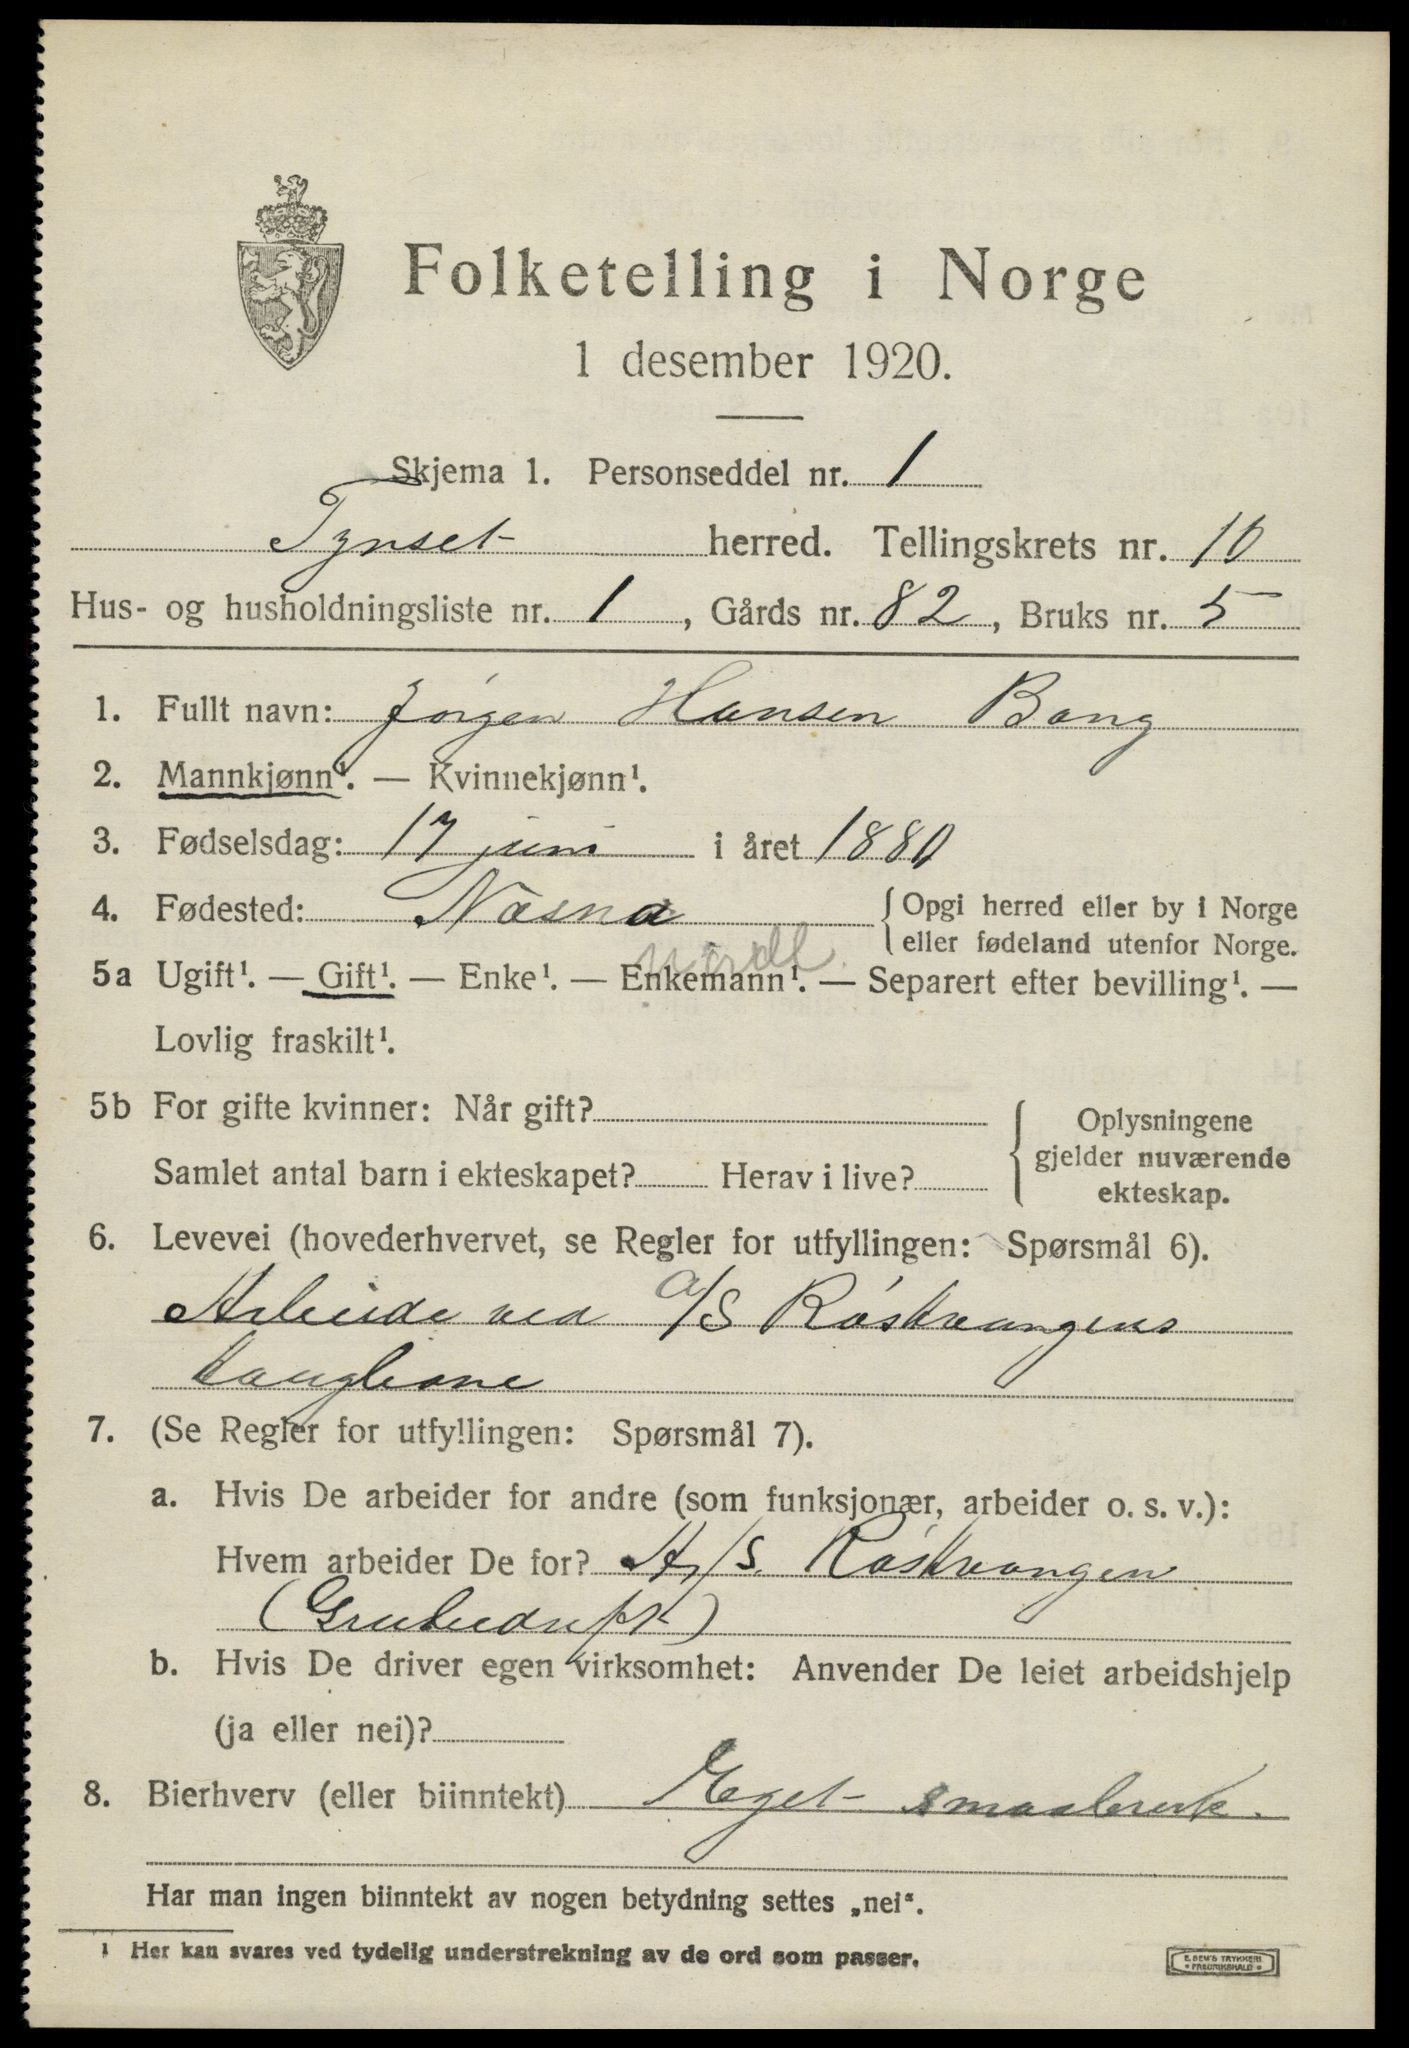 Folketelling i Norge
1 desember 1920.
Skjema 1. Personseddel nr. 1
Tynset herred. Tellingskrets nr. 10
Hus- og husholdningsliste nr. 1, Gårds nr. 82, Bruks nr. 5
1. Fullt navn: Jörgen Hansen Bang
2. Mannkjønn¹. — Kvinnekjønn¹.
3. Fødselsdag: 17 juni i året 1880
4. Fødested: Næsna { Opgi herred eller by i Norge
eller fødeland utenfor Norge.
nordl.
5a Ugift¹. — Gift¹. — Enke¹. — Enkemann¹. — Separert efter bevilling¹. —
Lovlig fraskilt¹.
5b For gifte kvinner: Når gift?
Samlet antal barn i ekteskapet? Herav i live?
{ Oplysningene
gjelder nuværende
ekteskap.
6. Levevei (hovederhvervet, se Regler for utfyllingen: Spørsmål 6).
Arbeide ved A/S Röstvangens
taugbane
7. (Se Regler for utfyllingen: Spørsmål 7).
a. Hvis De arbeider for andre (som funksjonær, arbeider o. s. v.):
Hvem arbeider De for? A/S. Röstvangen
(Grubedrift)
b. Hvis De driver egen virksomhet: Anvender De leiet arbeidshjelp
(ja eller nei)?
8. Bierhverv (eller biinntekt) Eget smaabruk.
Har man ingen biinntekt av nogen betydning settes „nei“.
1 Her kan svares ved tydelig understrekning av de ord som passer.
E. SEM'S TRYKKERI
• FREDRIKSHALD •